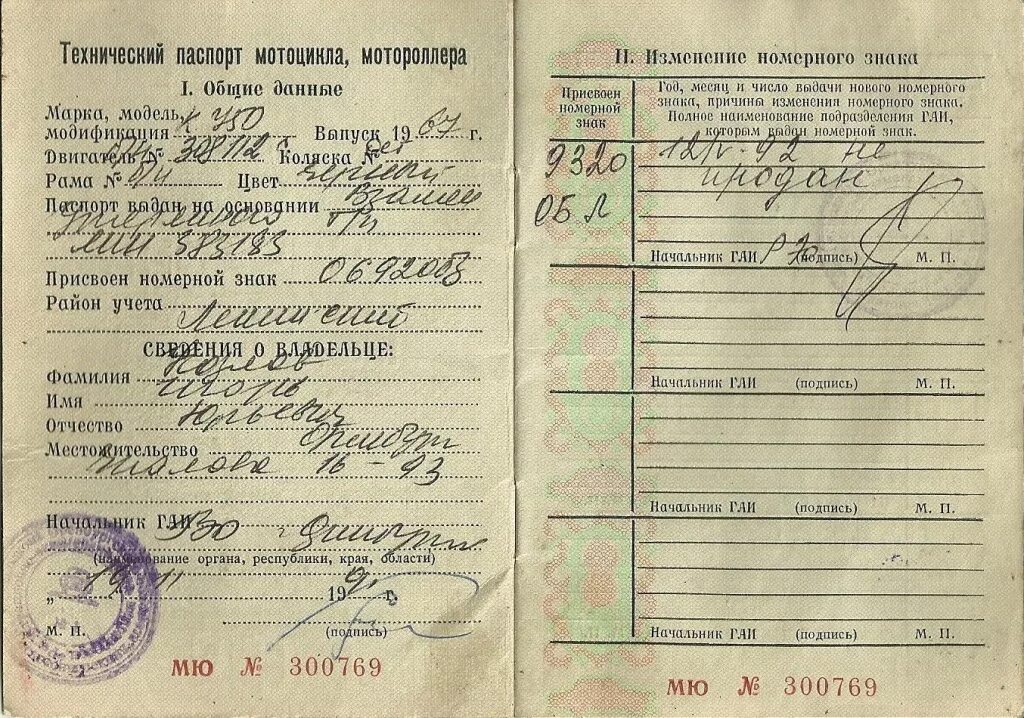 Технический паспорт мотоцикла, мотороллера
I. Общие данные
Марка, модель,
модификация К 750 Выпуск 1967 г.
Двигатель № 308112 Коляска № нет
Рама № б/н Цвет черный
Паспорт выдан на основании Взамен
утерянного т/п
383183
Присвоен номерной знак 0692 ОБ
Район учета
Ленинский
СВЕДЕНИЯ О ВЛАДЕЛЬЦЕ:
Фамилия
Имя Игорь
Отчество Юрьевич
Местожительство Оренбург
16 - 93
Начальник ГАИ РЭО Оренбург
(наименование органа, республики, края, области)
„ 19 11 199 г.
М. П. (подпись)
МЮ № 300769
II. Изменение номерного знака
Присвоен номерной знак
Год, месяц и число выдачи нового номерного
знака, причины изменения номерного знака.
Полное наименование подразделения ГАИ,
которым выдан номерной знак.
9320 92 не
ОБЛ продан
Начальник ГАИ РЭО (подпись) М. П.
Начальник ГАИ (подпись) М. П.
Начальник ГАИ (подпись) М. П.
Начальник ГАИ (подпись) М. П.
МЮ № 300769